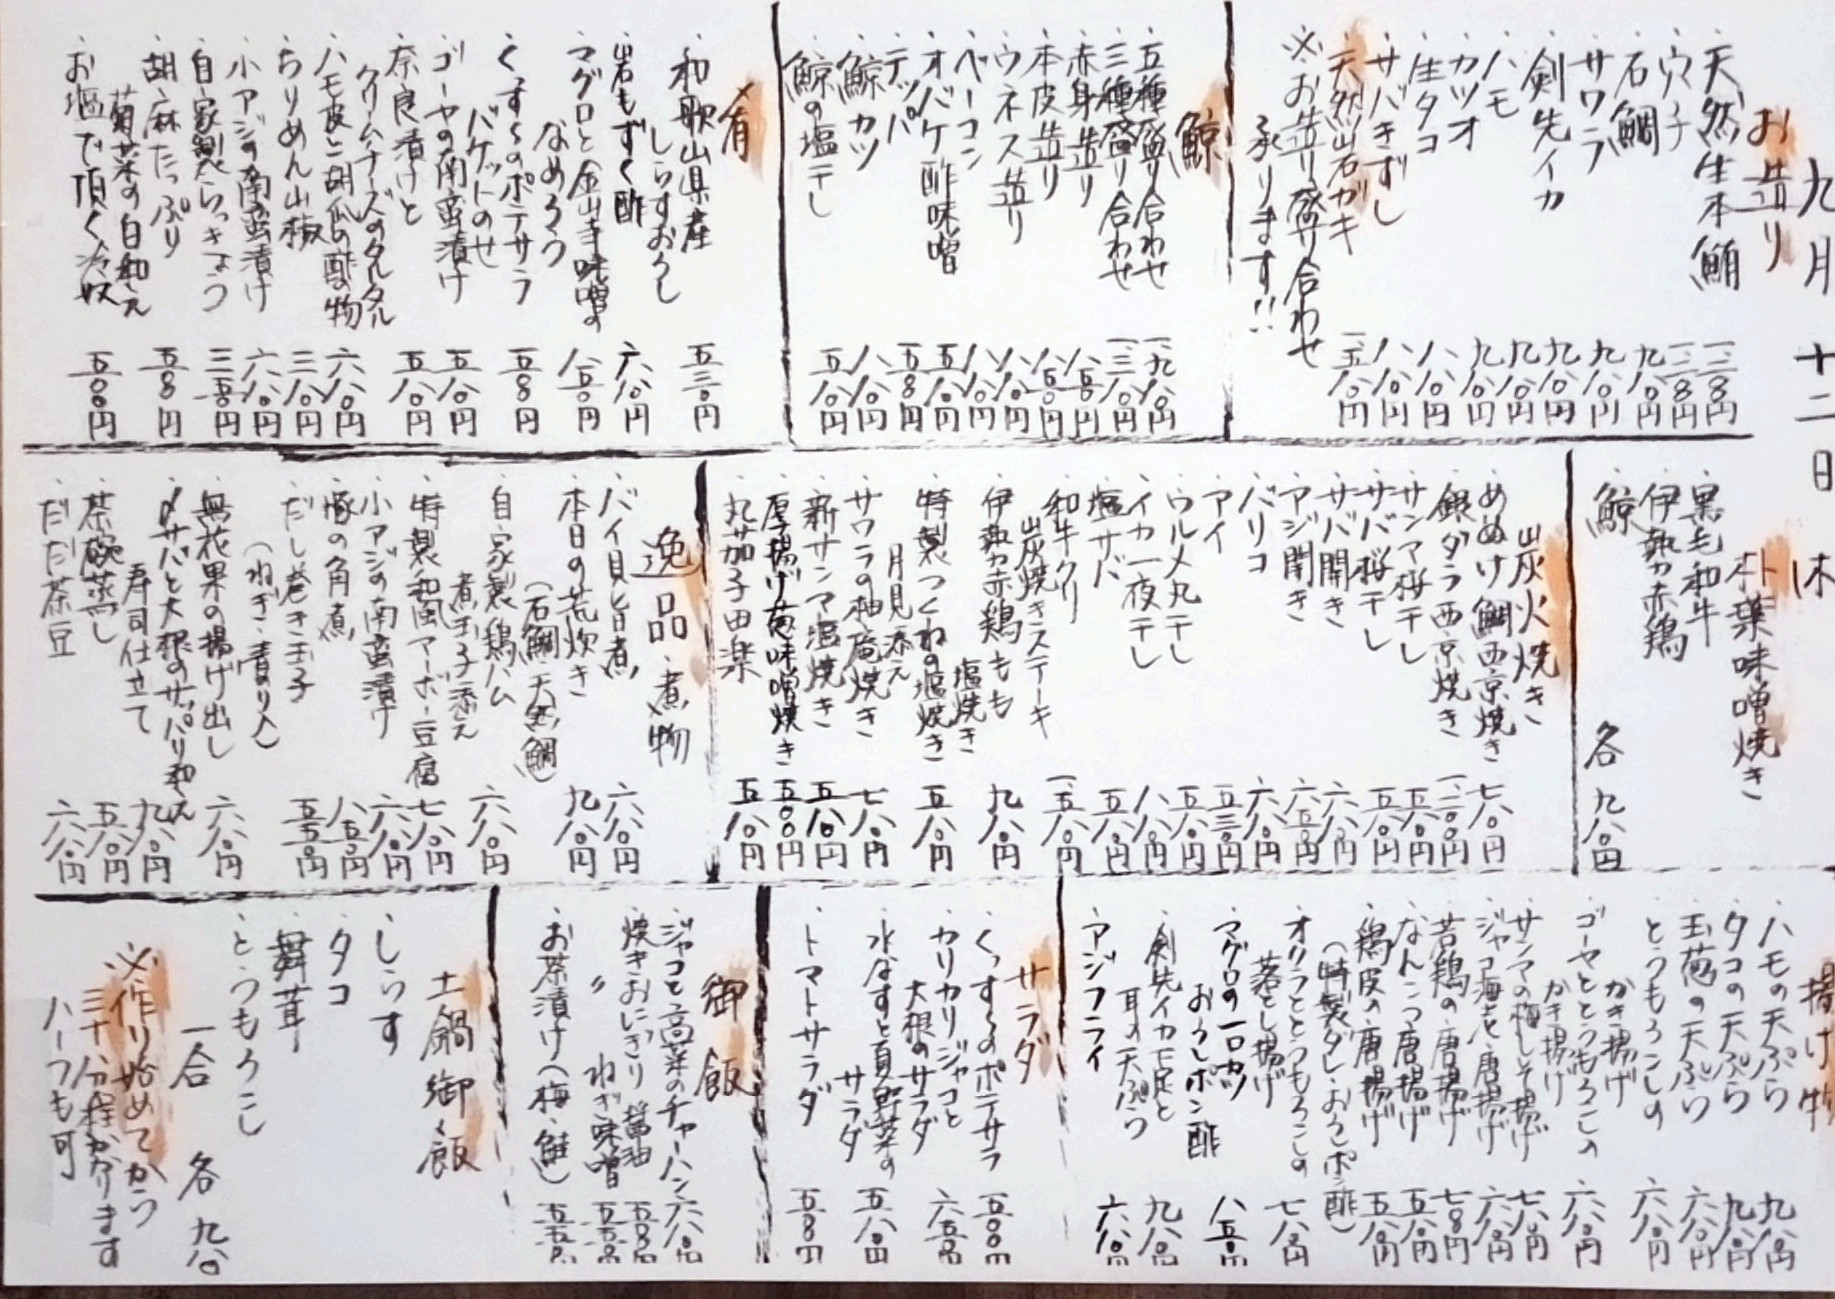 九月十二日 休
お造り
・天然生本鮪
・穴子
・石鯛
・サワラ
・剣先イカ
・ハモ
・カツオ
・生タコ
・サバきずし
・天然岩ガキ
※お造り盛り合わせ
承ります!!
九八〇円
九八〇円
九八〇円
九八〇円
九八〇円
八八〇円
八八〇円
鯨
・五種盛り合わせ
・三種盛り合わせ
・赤身造り
・本皮造り
・ウネス造り
・ベーコン
・オバケ酢味噌
・テッパ
・鯨カツ
・鯨の塩干し
一九八〇円
一三八〇円
八八〇円
五八〇円
肴
・和歌山県産
しらすおろし
・岩もずく酢
・マグロと金山寺味噌の
なめろう
・くずくずのポテサラ
バケットのせ
・ゴーヤの南蛮漬け
・奈良漬けと
クリームチーズのタルタル
・ハモ皮と胡瓜の酢の物
・ちりめん山椒
・小アジの南蛮漬け
・自家製らっきょう
・胡麻たっぷり
菊菜の白和え
・お塩で頂く冷奴
五三〇円
六八〇円
五八〇円
五八〇円
六八〇円
三八〇円
六八〇円
五八〇円
五八〇円
朴葉味噌焼き
・黒毛和牛
・伊勢赤鶏
・鯨
各九八〇円
炭火焼き
・めぬけ鯛西京焼き
・銀ダラ西京焼き
・サンマ桜干し
・サバ桜干し
・サバ開き
・アジ開き
・バリコ
・アイ
・ウルメ丸干し
・イカ一夜干し
・塩サバ
・和牛クリ
炭焼きステーキ
・伊勢赤鶏もも
塩焼き
・特製つくねの塩焼き
月見添え
・サワラの柚庵焼き
・新サンマ塩焼き
・厚揚げ葱味噌焼き
・丸茄子田楽
七八〇円
五八〇円
六八〇円
六八〇円
五三〇円
五八〇円
八八〇円
五八〇円
九八〇円
五八〇円
七八〇円
五八〇円
五〇〇円
五八〇円
逸品・煮物
・バイ貝旨煮
・本日の荒炊き
(石鯛・天然鯛)
・自家製鶏ハム
煮玉子添え
・特製和風マーボー豆腐
・小アジの南蛮漬け
・豚の角煮
・だし巻き玉子
(ねぎ・青のり入)
・無花果の揚げ出し
・〆サバと大根のサッパリ和え
寿司仕立て
・茶碗蒸し
・だだ茶豆
六八〇円
九八〇円
六八〇円
七八〇円
六八〇円
八五〇円
五五〇円
六八〇円
九八〇円
五八〇円
六八〇円
揚げ物
・ハモの天ぷら
・タコの天ぷら
・玉葱の天ぷら
・とうもろこしの
かき揚げ
・ゴーヤととうもろこしの
かき揚げ
・サンマの梅しそ揚げ
・ジャコ海老唐揚げ
・若鶏の唐揚げ
・なんこつ唐揚げ
・鶏皮の唐揚げ
(特製ダレ・おろしポン酢)
・オクラととうもろこしの
落とし揚げ
・マグロの一口カツ
おろしポン酢
・剣先イカ下足と
耳の天ぷら
・アジフライ
九八〇円
九八〇円
六八〇円
六八〇円
六八〇円
七八〇円
六八〇円
七八〇円
五八〇円
五八〇円
七八〇円
八五〇円
九八〇円
六八〇円
サラダ
・くずくずのポテサラ
・カリカリジャコと
大根のサラダ
・水なすと夏野菜の
サラダ
・トマトサラダ
五〇〇円
六五〇円
五八〇円
五八〇円
御飯
・ジャコと高菜のチャーハン
・焼きおにぎり 醤油
・〃 ねぎ味噌
・お茶漬け(梅・鮭)
六八〇円
五五〇円
五五〇円
土鍋御飯
・しらす
・タコ
・舞茸
・とうもろこし
一合 各九八〇
※作り始めてから
三十分程かかります
ハーフも可